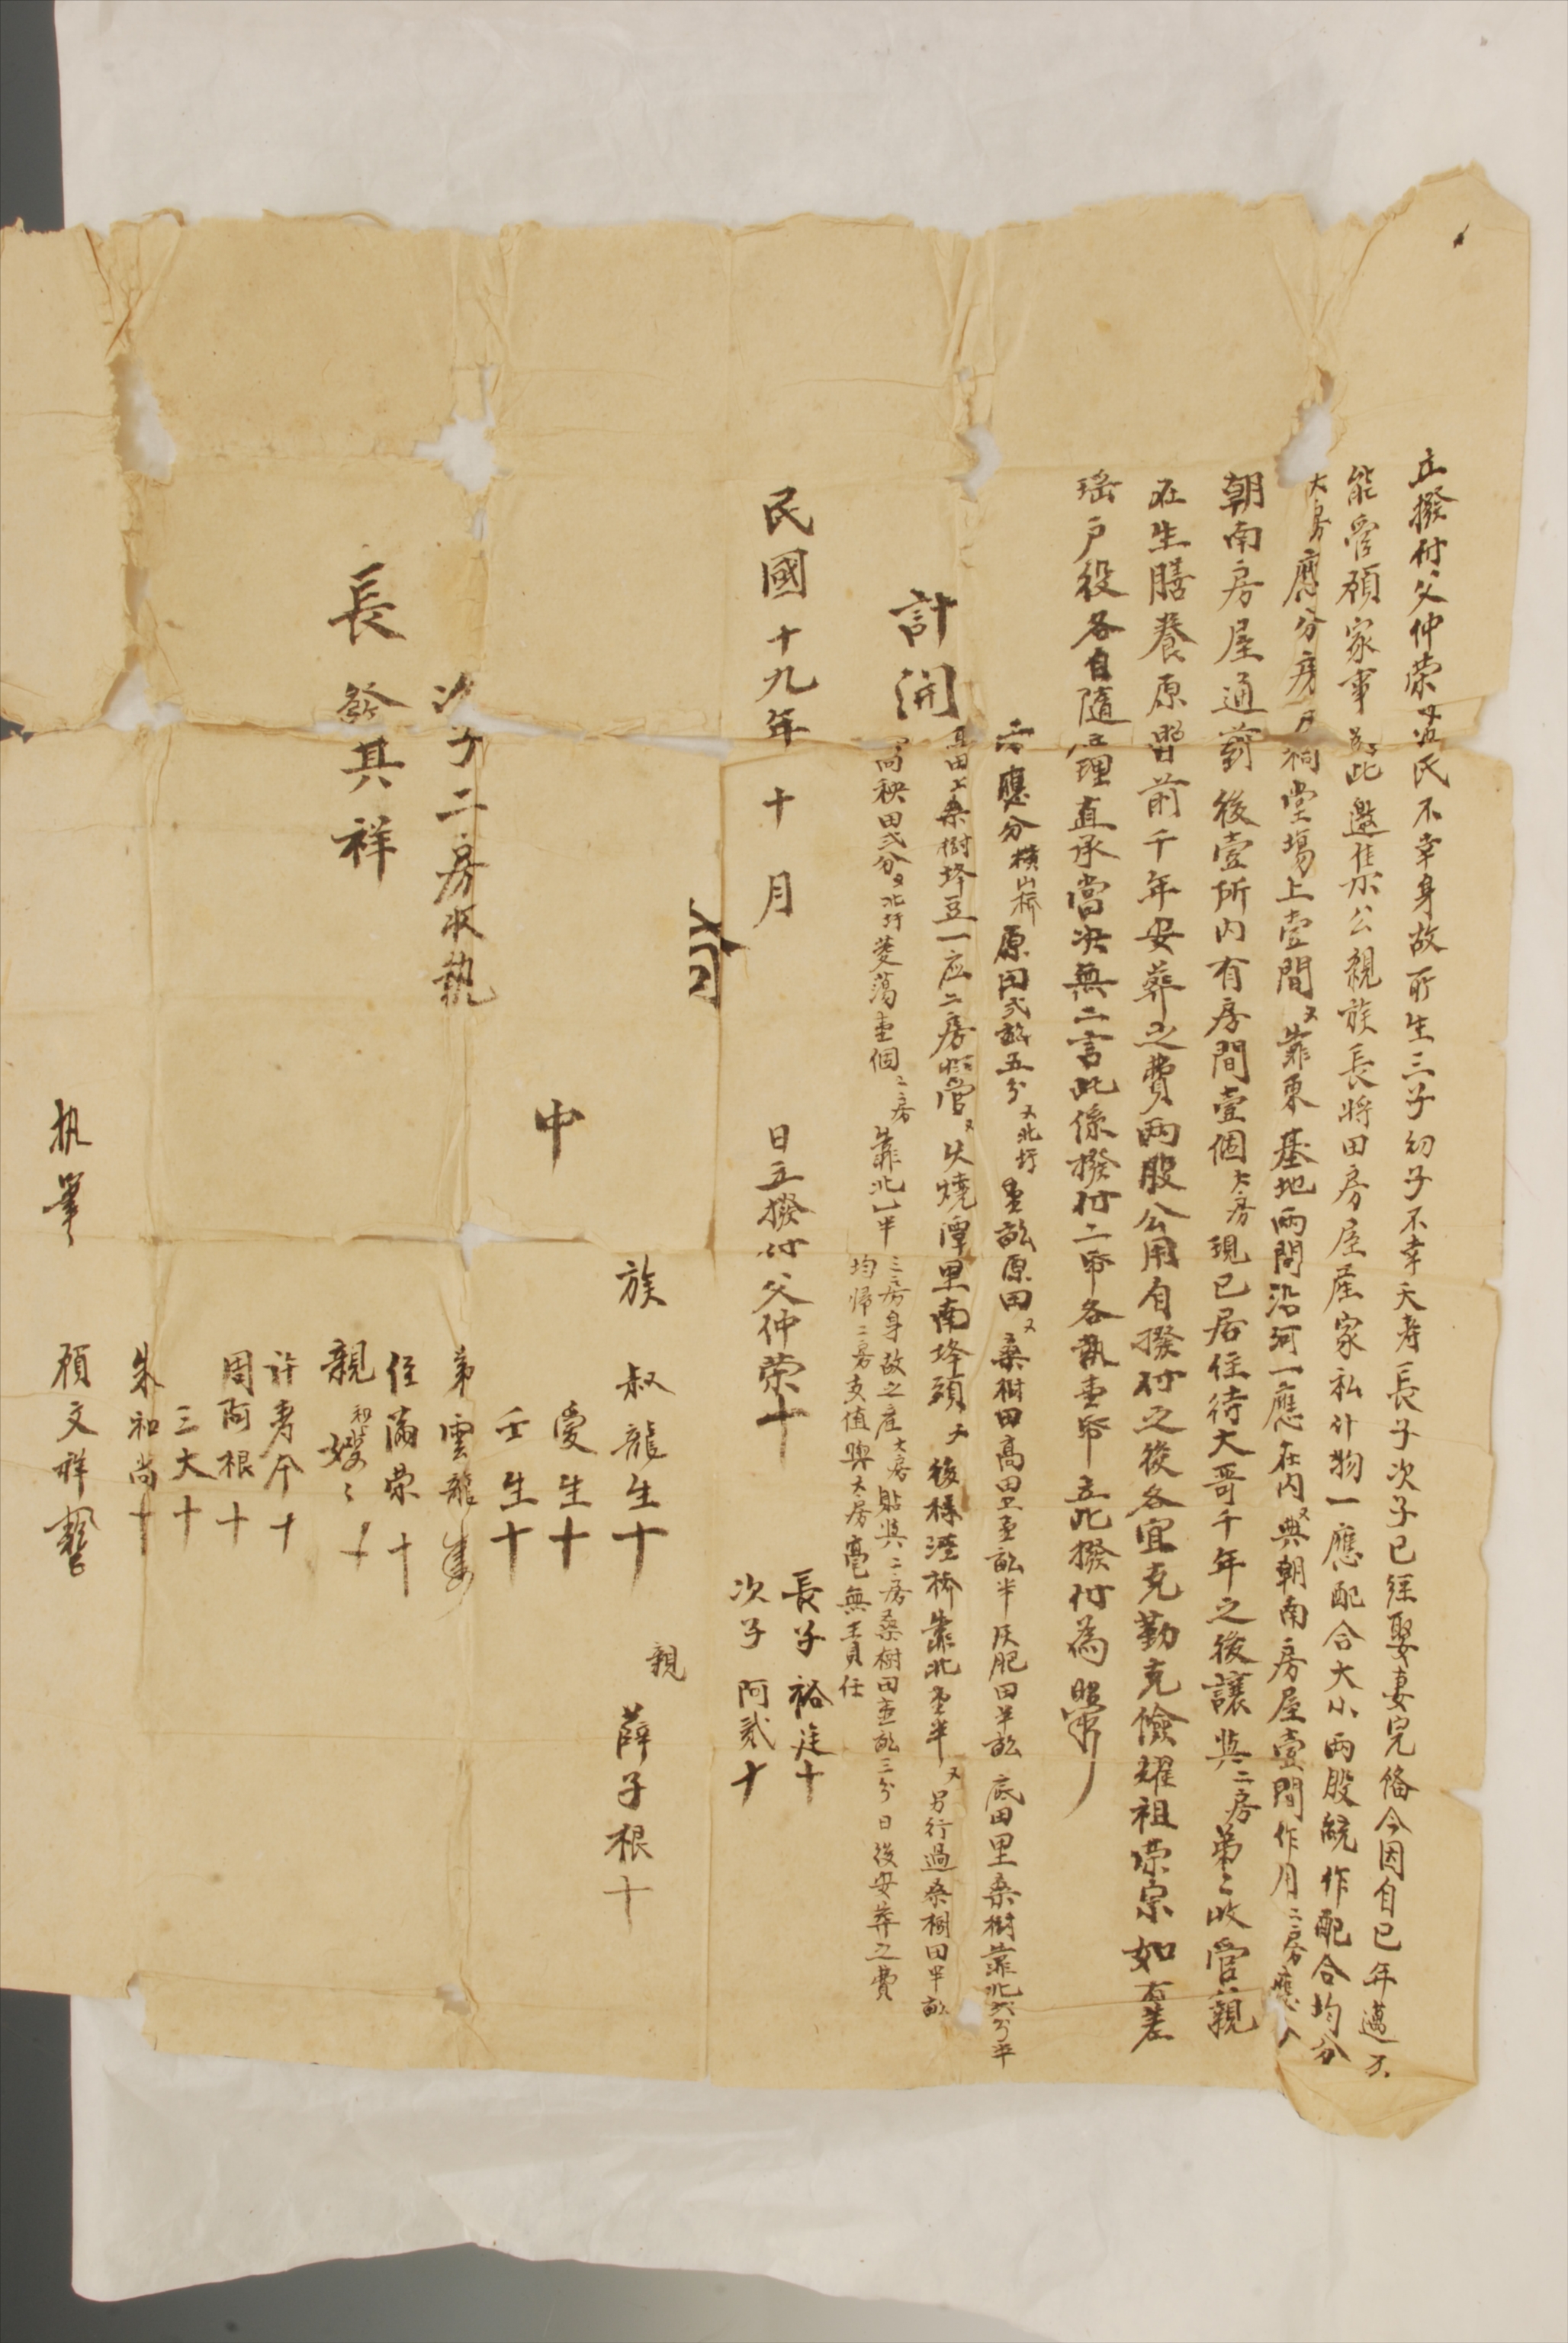 立撥付父仲荣 氏不幸身故所生三子幼子不幸夭寿長子次子已經娶妻完俻今因自已年邁不
能管顧家事 此邀集 公親族長將田房屋產家私什物一應配合大小两股統作配合均分
大房應分 祠堂場上壹間又靠東基地両間沿河一應在内又與朝南房屋壹間作用二房應
朝南房屋通前後壹所内有房間壹個大房現已居住待大哥千年之後讓與二房弟〻收管親
在生膳養原留前千年安葬之費两股公用自撥付之後各宜克勤克儉耀祖荣宗如有差
瑤户役各自隨 理直承當决無二言此係撥付二帋各執壹帋立此撥付為照
計開
應分橫山桥原田弍畝五分又北圩 壹畝原田又桑樹田高田上壹畝半灰肥田半畝底田里桑樹靠北弍分半
田上桑樹垳豆一应二房 管又 燒潭里南垳頭 後 涇桥靠北壹半又另行過桑樹田半畝
秧田弍分又北圩菱蕩壹個二房靠北乙半三房身故之產大房貼與二房桑樹田壹畝三分日後安葬之費
均歸二房支值與大房毫無責任
民國十九年十月 日立撥付父仲荣十
長子裕廷十
次子阿贰十
親 薛子根十
族 叔龍生十
愛生十
壬生十
中 弟雲龍
侄滿荣十
親 嫂〻十
許 十
周阿根十
三大十
朱和尚十
执筆 顧文祥
次子二房收執
長發其祥